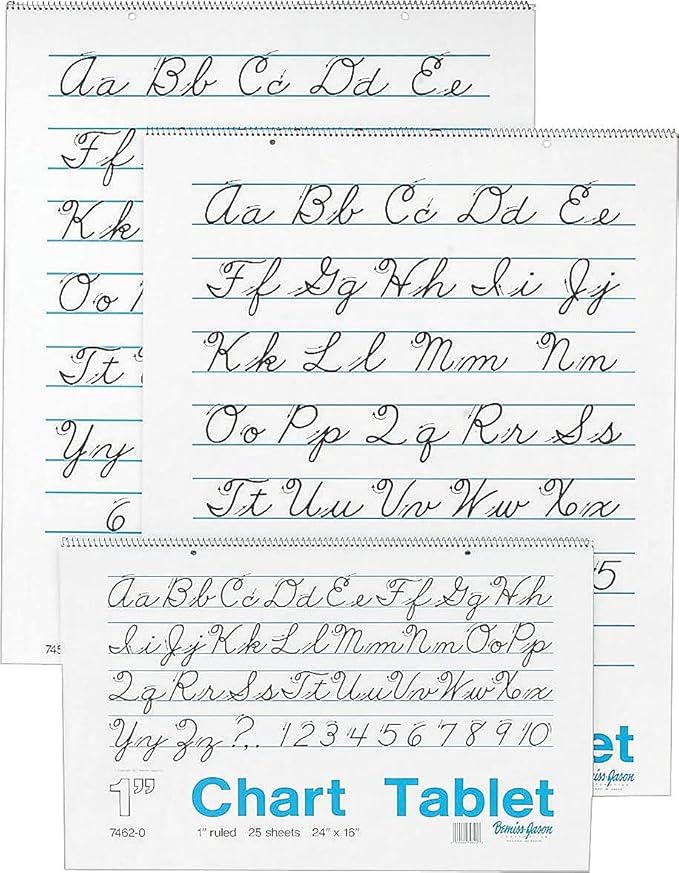 Aa Bb Cc Dd Ee
Ff
Kk
Oo
Tt
Yy
6
Aa Bb Cc Dd Ee
Ff Gg Hh Ii Jj
Kk Ll Mm Nn
Oo Pp Qq Rr Ss
Tt Uu Vv Ww Xx
5
et
Bemiss-Jason
Aa Bb Cc Dd Ee Ff Gg Hh
Ii Jj Kk Ll Mm Nn Oo Pp
Qq Rr Ss Tt Uu Vv Ww Xx
Yy Zz ?,. 1 2 3 4 5 6 7 8 9 10
1” Chart Tablet
7462-0 1" ruled 25 sheets 24" x 16" Bemiss-Jason